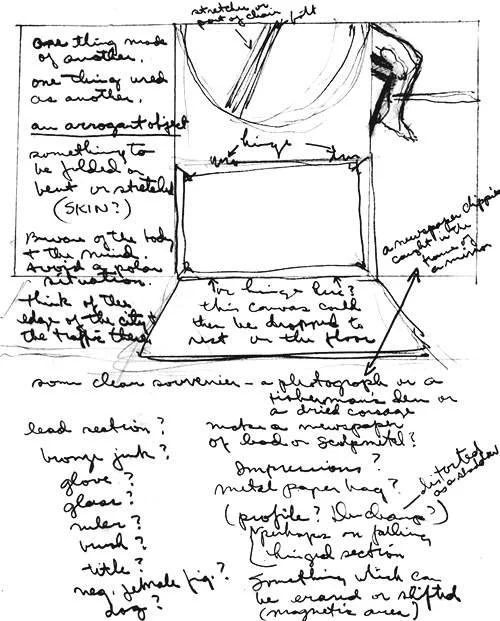 stretcher or
part of chair
one thing made
of another.
one thing used
as another.
an arrogant object
something to
be folded or
bent or stretched
(SKIN?)
Beware of the body
& the mind.
Avoid a polar
situation.
think of the
edge of the city &
the traffic there
hinge
or hinge here?
this canvas could
then be dropped to
rest on the floor
a newspaper clipping
caught in the
frame of
a mirror
some clear souvenir - a photograph or a
fisherman's den or
a dried corsage
lead section?
bronze junk?
glove?
glass?
ruler?
brush?
title?
neg. female fig.?
dog?
make a newspaper
of lead or Sculpmetal?
Impressions?
metal paper bag?
(profile? Duchamp?)
distorted
as a shadow
Perhaps on falling
hinged section
Something which can
be erased or shifted
(magnetic area)